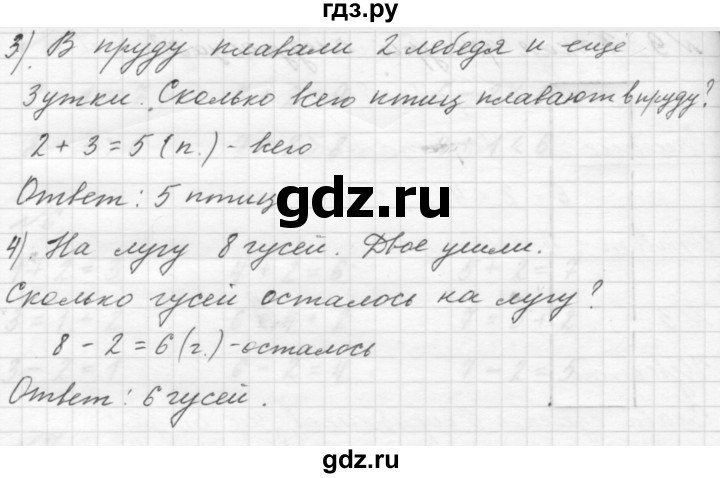 гдз.ру
3). В пруду плавали 2 лебедя и еще
3 утки. Сколько всего птиц плавают в пруду?
2 + 3 = 5 (п.) - всего
Ответ: 5 птиц
gdz.ru
4). На лугу 8 гусей. Двое ушли.
Сколько гусей осталось на лугу?
8 - 2 = 6 (г.) - осталось
Ответ: 6 гусей.
gdz.ru